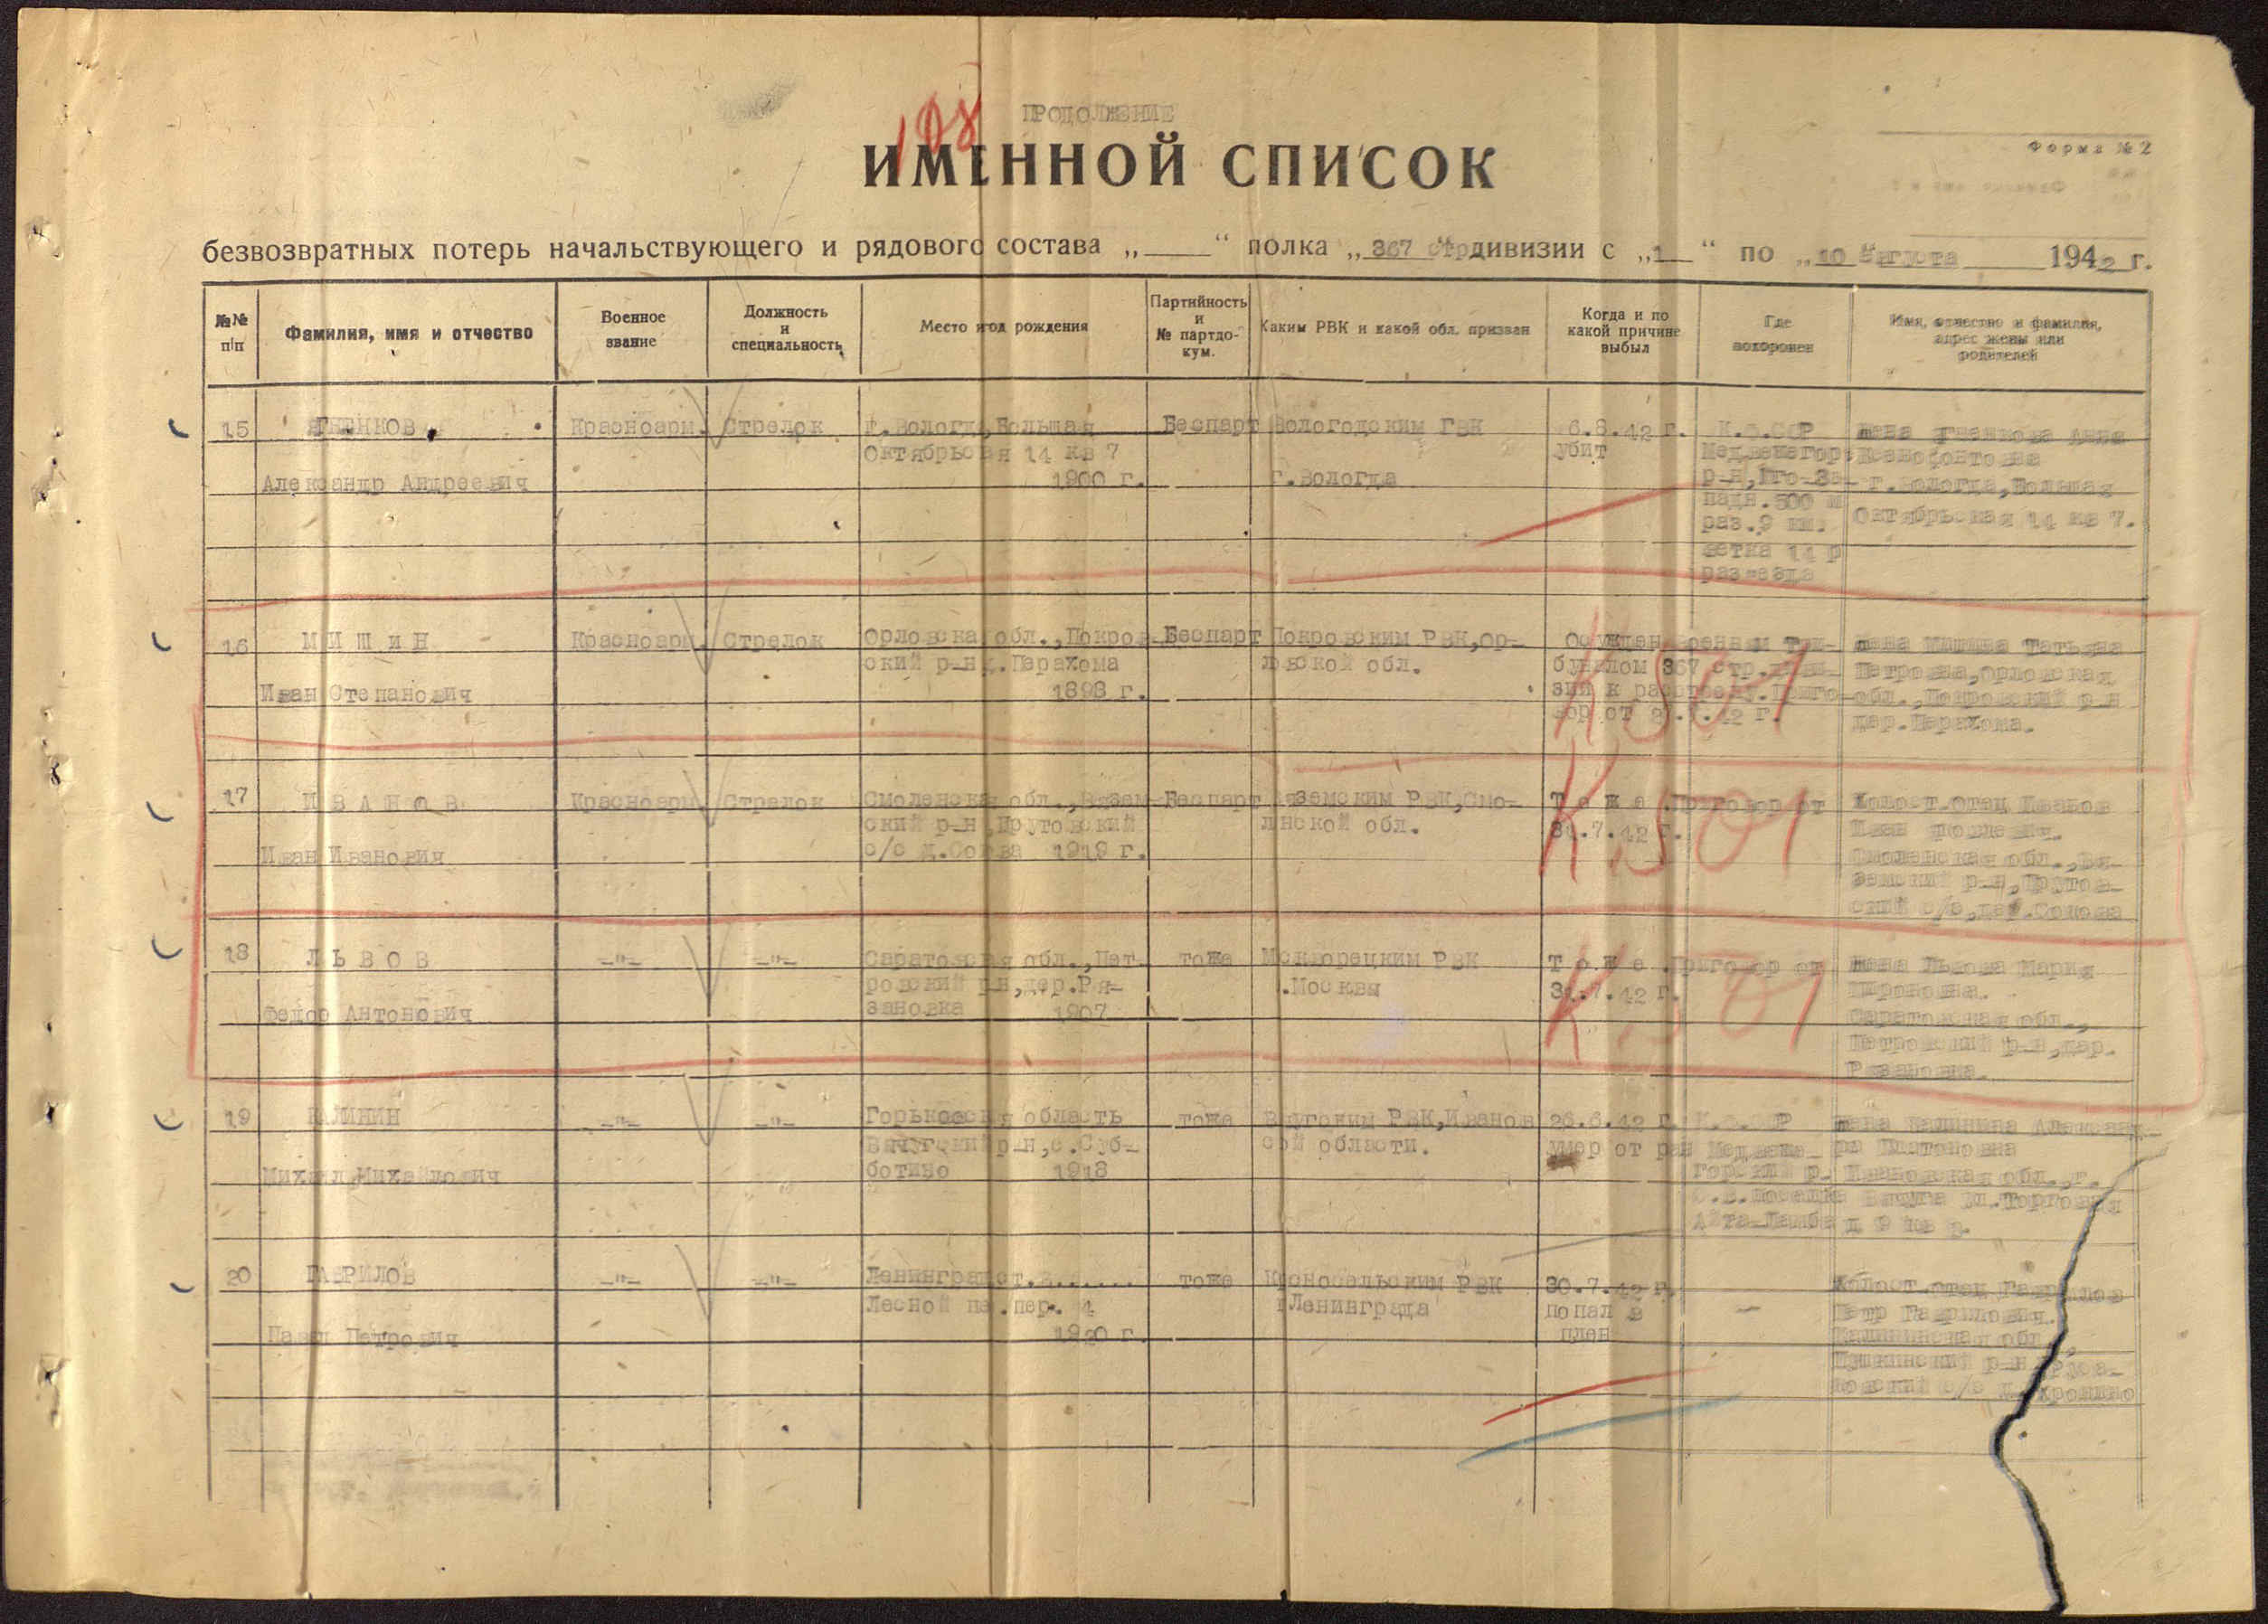 108
ПРОДОЛЖЕНИЕ
ИМЕННОЙ СПИСОК
Форма № 2
безвозвратных потерь начальствующего и рядового состава „ “ полка „ 367 стр дивизии с „1 “ по „10 августа 1942 г.
№№ п/п
Фамилия, имя и отчество
Военное звание
Должность и специальность
Место и год рождения
Партийность и № партдокум.
Каким РВК и какой обл. призван
Когда и по какой причине выбыл
Где похоронен
Имя, отчество и фамилия, адрес жены или родителей
15
Александр Андреевич
Красноарм.
Стрелок
г. Вологда, Большая
Октябрьская 14 кв 7
1900 г.
Беспарт
Вологодским ГВК
г. Вологда
6.8.42 г.
убит
К.Ф.ССР
Медвежегор
р-н, Юго-За-
падн. 500 м
раз. 9 км.
ветка 14 р
раз-езда
Жена Анна
Ксенофонтовна
г. Вологда, Большая
Октябрьская 14 кв 7.
16
МИШИН
Иван Степанович
Красноарм.
Стрелок
Орловска обл., Покров-
ский р-н д. Парахома
1898 г.
Беспарт
Покровским РВК, Ор-
ловской обл.
Осужден военным Три-
буналом 367 стр. диви-
зии к расстрелу. Приго-
вор от 42 г.
К 501
Жена Мишина Татьяна
Петровна, Орловская
обл., Покровский р-н
дер. Парахома.
17
ИВАНОВ
Иван Иванович
Красноарм.
Стрелок
Смоленская обл., Вязем-
ский р-н, Прутовский
с/с д. 1919 г.
Беспарт
Вяземским РВК, Смо-
ленской обл.
Тоже. Приговор от
31.7.42 г.
К 501
Холост. отец Иванов
Иван
Смоленская обл., Вя-
земский р-н, Прутов-
ский с/с, дер.
18
ЛЬВОВ
Федор Антонович
-"-
-"-
Саратовская обл., Пет-
ровский р-н, дер. Ря-
зановка 1907
тоже
Москворецким РВК
г. Москвы
Тоже. Приговор от
31.7.42 г.
К 501
Жена Львова Мария
Мироновна.
Саратовская обл.,
Петровский р-н, дер.
Рязановка.
19
КАЛИНИН
Михаил Михайлович
-"-
-"-
Горьковская область
Вичугский р-н, с. Суб-
ботино 1918
тоже
Вичугским РВК, Иванов
ской области.
26.6.42 г.
умер от ран
К.Ф.ССР
Медвеже-
горский р.
С.В. поселка
Айта-Ламба
Жена Калинина Александ-
ра Платоновна
Ивановская обл., г.
Вичуга ул. Торговая
д 9 кв 2.
20
ГАВРИЛОВ
Павел Петрович
-"-
-"-
Ленинград ст. ......
Лесной пр. пер. 4
1920 г.
тоже
Красносельским РВК
г Ленинграда
30.7.42 г.
попал в
плен
-
Холост. отец Гаврилов
Петр Гаврилович.
Калининская обл.,
Пушкинский р-н
с/с д.